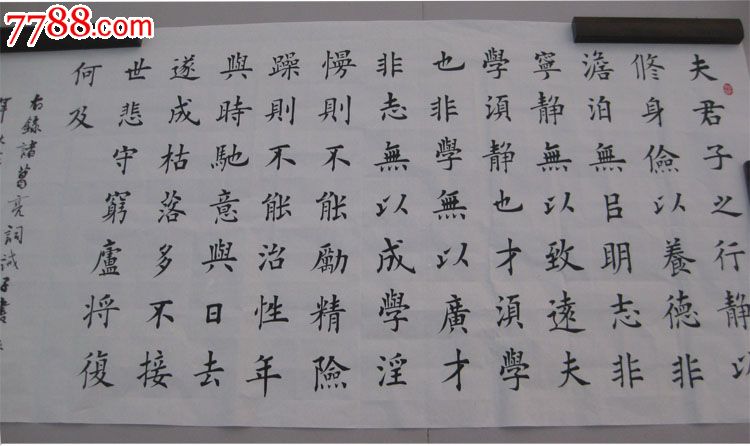 7788.com
夫君子之行静以
修身儉以養德非
澹泊無㠯明志非
寧静無以致遠夫
學湏静也才湏學
也非學無以廣才
非志無以成學淫
慢則不能勵精險
躁則不能治性年
與時馳意與日去
遂成枯落多不接
世悲守窮廬將復
何及
右錄諸葛亮詞誡子書